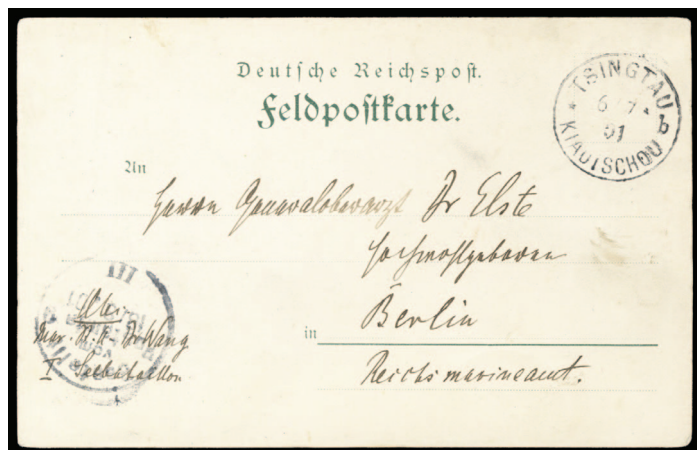 Deutsche Reichspost.
Feldpostkarte.
TSINGTAU
6 7
01
b
KIAUTSCHOU
An
Herrn Generaloberarzt Dr Elste
Hochwohlgeboren
in Berlin
Reichsmarineamt.
III
Mar.
I Seebataillon